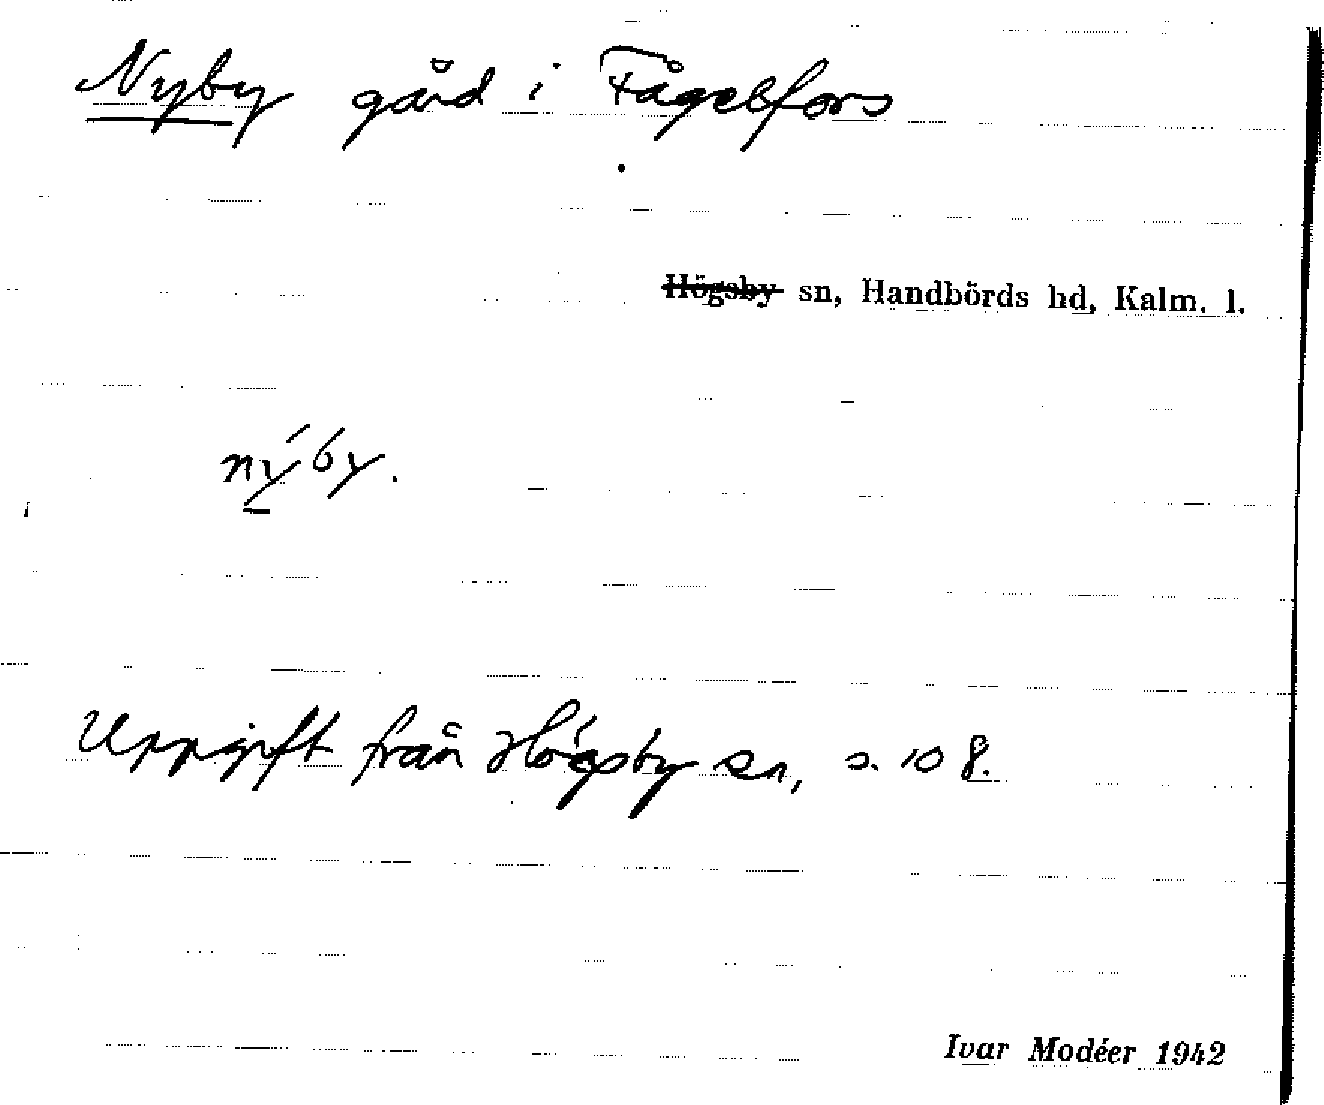 Nyby gård i Fågelfors
Högsby sn, Handbörds hd, Kalm. l.
nýby.
Uppgift från Högsby sn, s. 108.
Ivar Modéer 1942